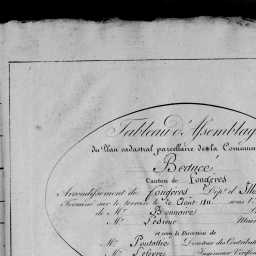 Tableau d'Assemblag
du Plan cadastral parcellaire de la Commun
Beaucé
Canton de Fougères
Arrondissement de Fougères Dép.t d'Ille
Terminé sur le terrain le Août 181 sous l'
de M.r Bonnaire
M.r Lesieur Mai
et sous la Direction de
M.r Pontallié Directeur des Contributi
M.r Lefevre Ingénieur Vérific